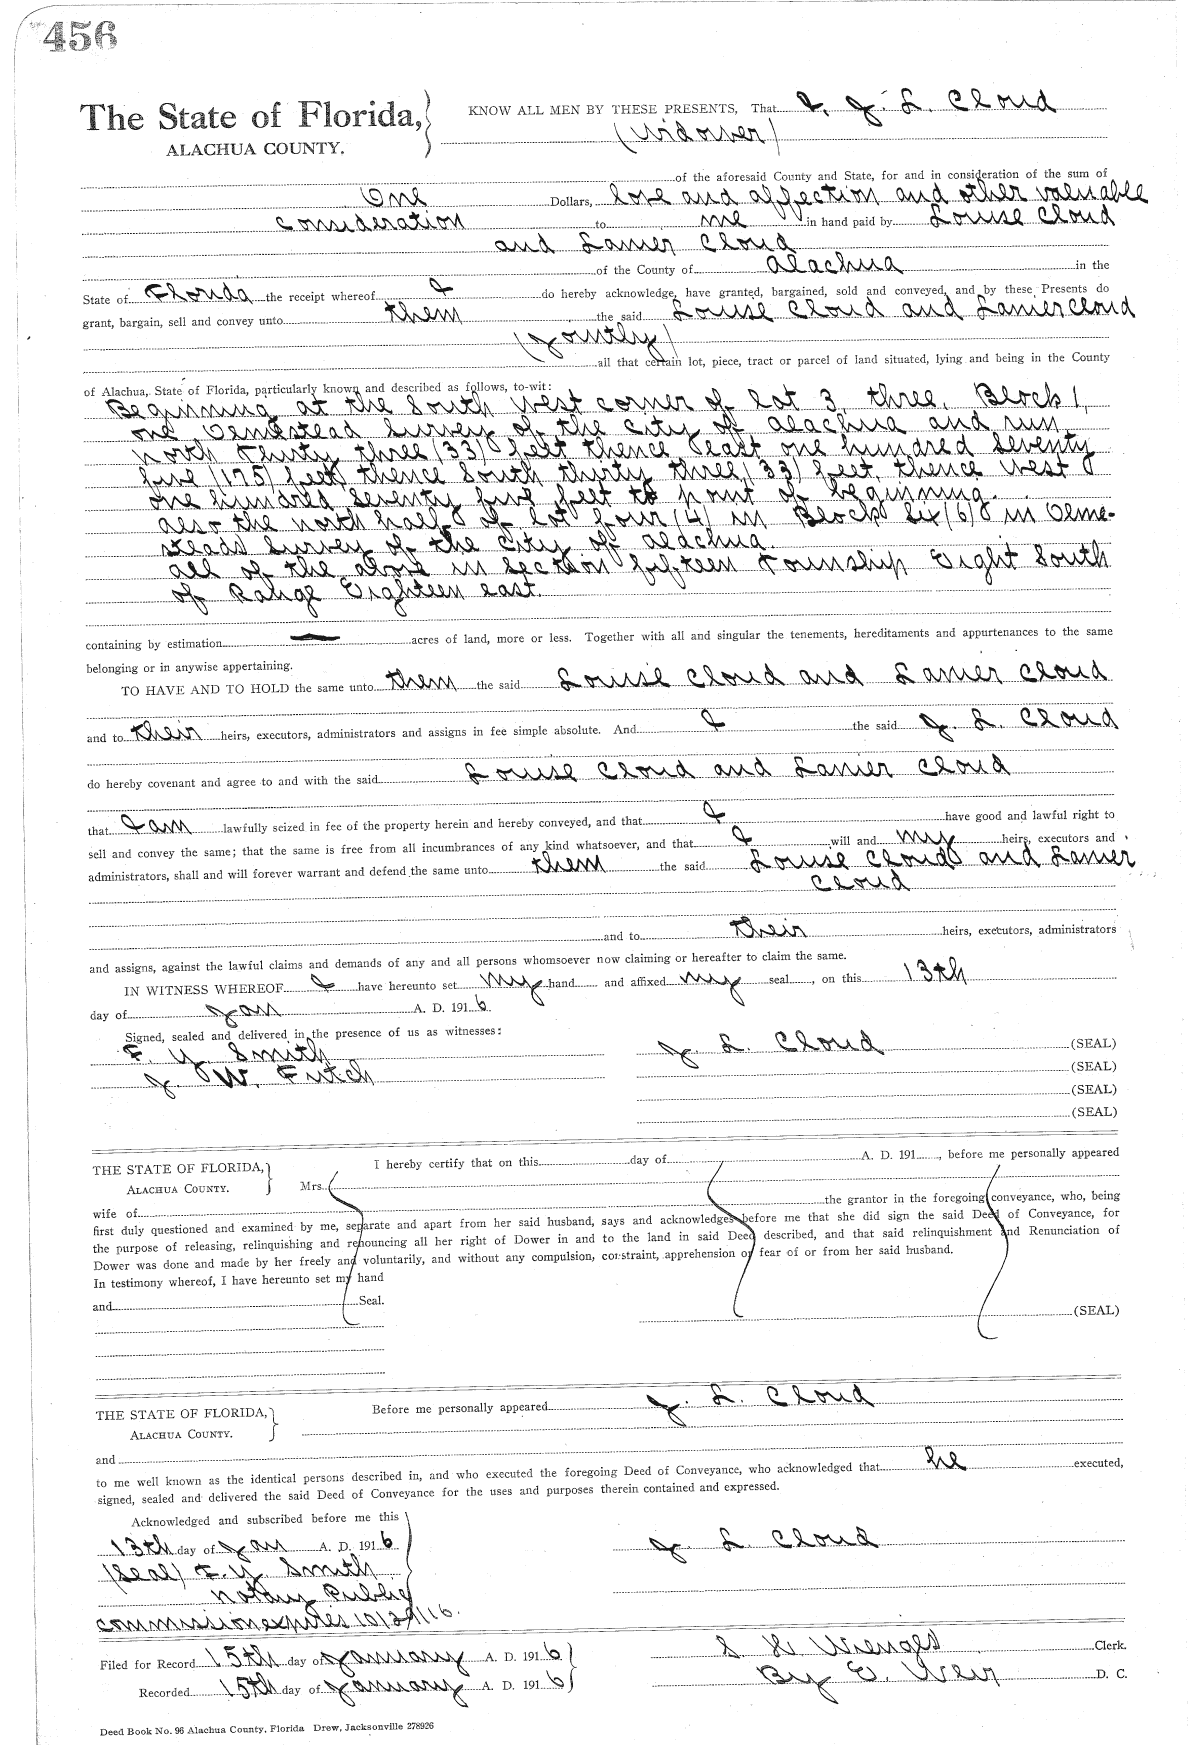 456
The State of Florida,
ALACHUA COUNTY.
KNOW ALL MEN BY THESE PRESENTS, That I, J. L. Cloud
(Widower)
of the aforesaid County and State, for and in consideration of the sum of
One Dollars, love and affection and other valuable
consideration to me in hand paid by Louise Cloud
and Lamer Cloud
of the County of Alachua in the
State of Florida the receipt whereof I do hereby acknowledge, have granted, bargained, sold and conveyed, and by these Presents do
grant, bargain, sell and convey unto them the said Louise Cloud and Lamer Cloud
(Jointly)
all that certain lot, piece, tract or parcel of land situated, lying and being in the County
of Alachua, State of Florida, particularly known and described as follows, to-wit:
Beginning at the South West corner of Lot 3 three, Block 1,
one Olmestead Survey of the City of Alachua and run
North Thirty three (33) feet thence East one hundred seventy
five (175) feet thence South thirty three (33) feet, thence West
one hundred seventy five feet to point of beginning.
also the north half of lot four (4) in Block Six (6) in Olme-
steads Survey of the City of Alachua.
all of the above in section fifteen Township Eight South
of Range Eighteen east.
containing by estimation acres of land, more or less. Together with all and singular the tenements, hereditaments and appurtenances to the same
belonging or in anywise appertaining.
TO HAVE AND TO HOLD the same unto them the said Louise Cloud and Lamer Cloud
and to their heirs, executors, administrators and assigns in fee simple absolute. And I the said J. L. Cloud
do hereby covenant and agree to and with the said Louise Cloud and Lamer Cloud
that I am lawfully seized in fee of the property herein and hereby conveyed, and that I have good and lawful right to
sell and convey the same; that the same is free from all incumbrances of any kind whatsoever, and that I will and my heirs, executors and
administrators, shall and will forever warrant and defend the same unto them the said Louise Cloud and Lamer
Cloud
and to their heirs, executors, administrators
and assigns, against the lawful claims and demands of any and all persons whomsoever now claiming or hereafter to claim the same.
IN WITNESS WHEREOF I have hereunto set my hand and affixed my seal, on this 13th
day of Jan A. D. 1916
Signed, sealed and delivered in the presence of us as witnesses:
F. Y. Smith
J. W. Futch
J L. Cloud (SEAL)
(SEAL)
(SEAL)
(SEAL)
THE STATE OF FLORIDA,
ALACHUA COUNTY.
I hereby certify that on this day of A. D. 191 , before me personally appeared
Mrs.
wife of the grantor in the foregoing conveyance, who, being
first duly questioned and examined by me, separate and apart from her said husband, says and acknowledges before me that she did sign the said Deed of Conveyance, for
the purpose of releasing, relinquishing and renouncing all her right of Dower in and to the land in said Deed described, and that said relinquishment and Renunciation of
Dower was done and made by her freely and voluntarily, and without any compulsion, constraint, apprehension or fear of or from her said husband.
In testimony whereof, I have hereunto set my hand
and Seal.
(SEAL)
THE STATE OF FLORIDA,
ALACHUA COUNTY.
Before me personally appeared J. L. Cloud
and
to me well known as the identical persons described in, and who executed the foregoing Deed of Conveyance, who acknowledged that he executed,
signed, sealed and delivered the said Deed of Conveyance for the uses and purposes therein contained and expressed.
Acknowledged and subscribed before me this
13th day of Jan A. D. 1916
J L Cloud
(Seal) F. Y. Smith
Notary Public
commission expires
Filed for Record 15th day of January A. D. 1916
S. H. Wienges Clerk.
Recorded 15th day of January A. D. 1916
By E. Weir D. C.
Deed Book No. 96 Alachua County, Florida Drew, Jacksonville 278926